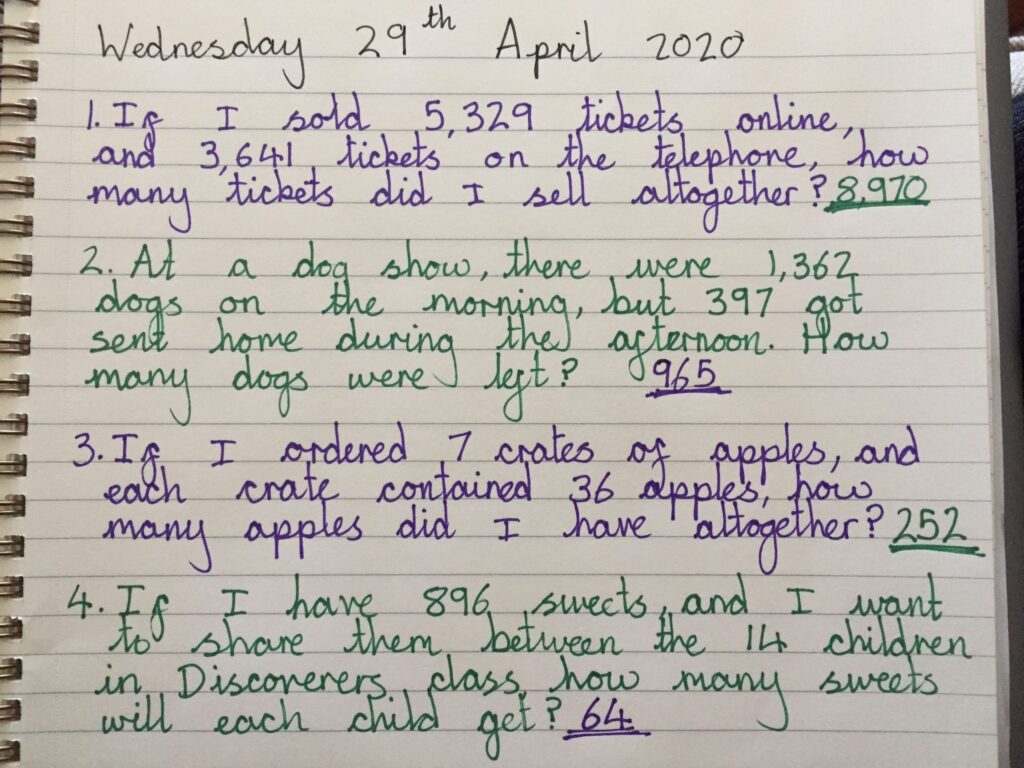 Wednesday 29th April 2020
1. If I sold 5,329 tickets online,
and 3,641 tickets on the telephone, how
many tickets did I sell altogether? 8,970
2. At a dog show, there were 1,362
dogs on the morning, but 397 got
sent home during the afternoon. How
many dogs were left? 965
3. If I ordered 7 crates of apples, and
each crate contained 36 apples, how
many apples did I have altogether? 252
4. If I have 896 sweets, and I want
to share them between the 14 children
in Discoverers class, how many sweets
will each child get? 64